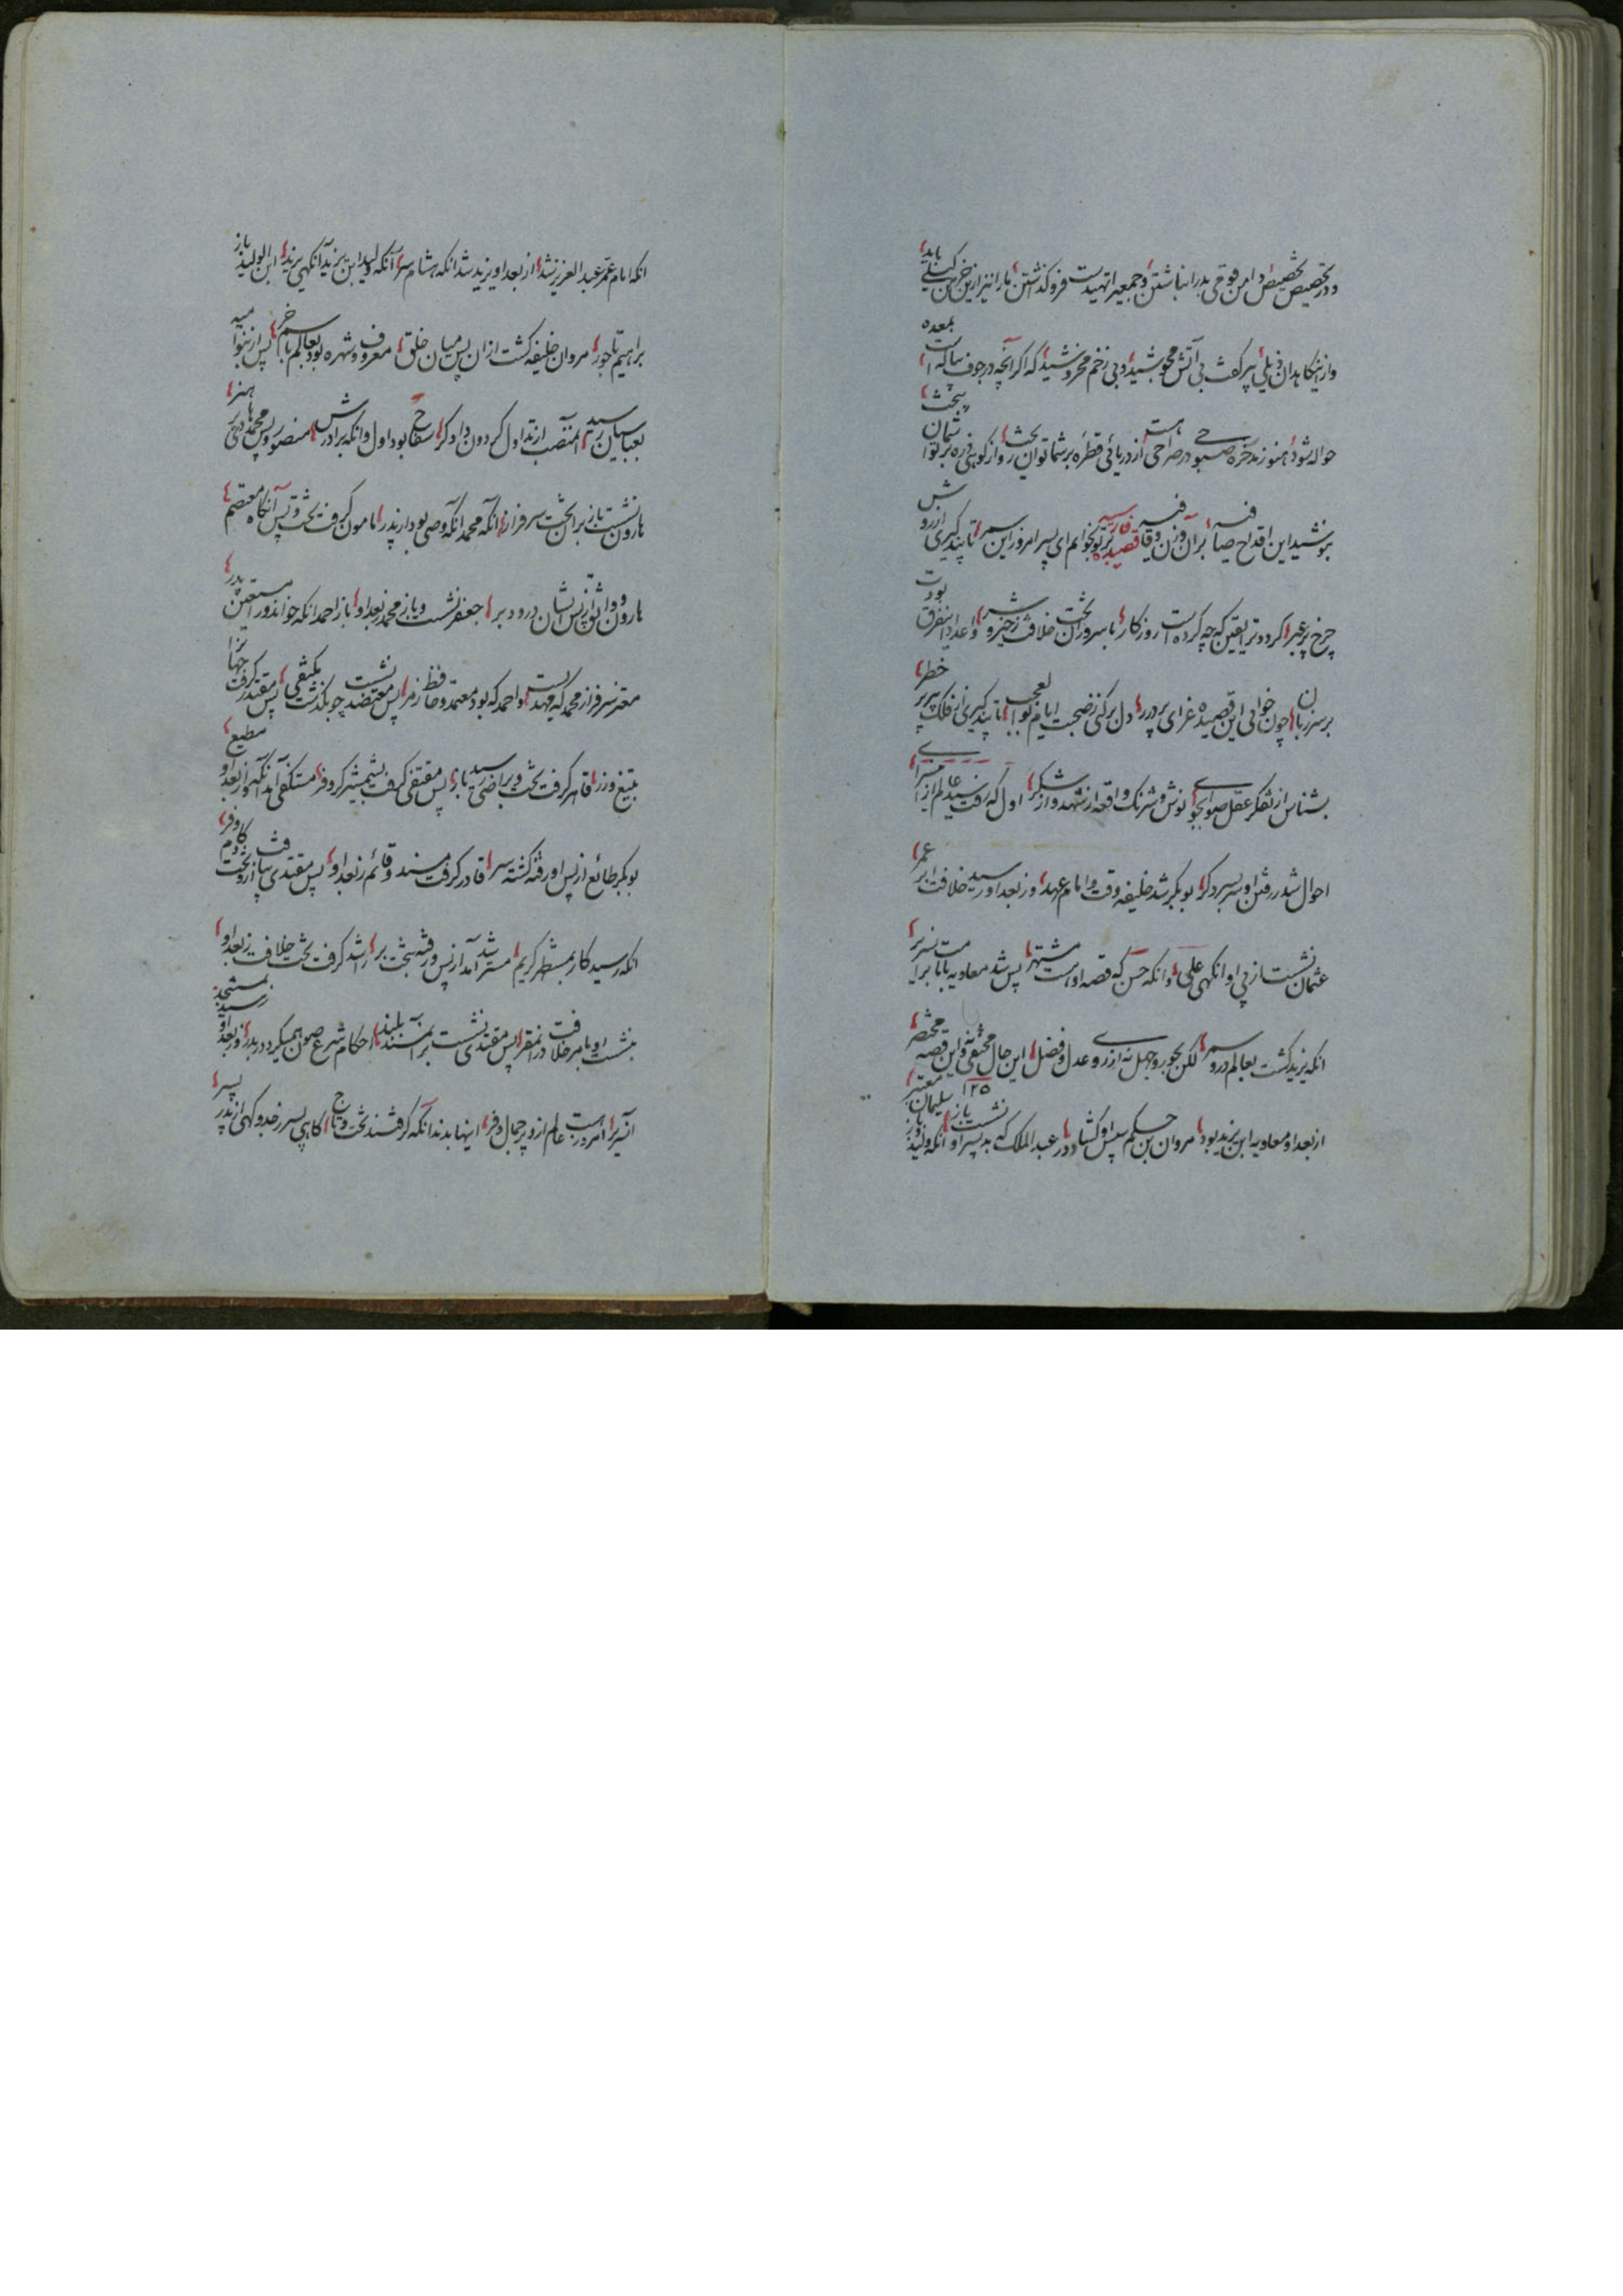 و در تخصیص تخصیص دامن قومی بدر انباشتن و جمعی را تهیدست فرو گذاشتن ما را نیز ازین خرمن کیلی باید
و ازین کاهدان ذیلی پر کفت بی آتش مجوشید و بی زخم مخروشید که اگر آنچه در جوف ماست بمعده
حواله شود هنوز زنده خره صبوحی در صراحی هست از دریائی قطره بر شما توان ریخت و از کوهی ذره بر شما توان بیخت
بنوشید این اقداح صافیه بر آن وزن و قافیه قصیده فارسیه بر تو بخوانم ای پسر امروز این سمر تا پند گیری از روش
چرخ پر عبر گردد ترا یقین که چه کرده است روزگار با سروران تخت خلافت ز خیر و شر واعداد این فرق بودت
بر سر زبان چون خوانی این قصیده غرای پر درر دل بر کنی ز صحبت ایام بوالعجب تا پند گیری از فلک پیر پر خطر
بشناس از تفکر عقل صوابجوی نوش و شرنگ واقعه از شهد و از شکر اول که رفت سید عالم ازین سرای
احوال شد ز رفتن او سر بسر دگر بوبکر شد خلیفه وقت و امام عهد وز بعد او رسید خلافت ابر عمر
عثمان نشست از پی او وانگهی علی وانگه حسن که قصه او هست مشتهر پس شد معاویه بامامت سریر
انگه یزید گشت بعالم درو سمر لکن بجور و جهل نه از روی عدل و فضل این حال مختفی نه و این قصه مختصر
۱۲۵
از بعد او معاویه ابن یزید بود مروان بن حکم سپس او گشاد در عبد الملک که بد پسر او نشست باز انگه ولید و باز سلیمان معتبر
انگه امام عمر عبد العزیز شد از بعد او یزید شد انگه هشام سر انگه ولید ابن یزید آنگهی یزید ابن الولید باز
براهیم تاجور مروان خلیفه گشت از ان پس میان خلق معروف و شهره بود بعالم باسم خر پس از بنو امیه
بعباسیان رسید این منصب از تداول گردون دادگر سفاح بود اول وانگه برادرش منصور و پس محمد هادی پر هنر
هارون نشست باز بران تخت سرفراز انگه محمد آنکه وصی بود از پدر مامون گرفت تخت و پس آنگاه معتصم
هارون و واثق از پس ایشان درود بر جعفر نشست و باز محمد ز بعد او باز احمد انکه خواند ورا مستعین پدر
معتز سرفراز محمد که مهتدیست و احمد که بود معتمد و حافظ زمر پس معتضد نشست چو بگذشت مکتفی پس مقتدر گرفت جهانرا
بتیغ و زر قاهر گرفت تخت و براضی رسید باز پس متقی گرفت بشمشیر کر و فر مستکفی آمد انگه و از بعد او مطیع
بوبکر طائع از پس او رفته گشته سر قادر گرفت مسند و قائم ز بعد او پس مقتدی بیافت ازو تخت و کام و فر
انگه رسید کار بمستظهر کریم مسترشد آمد از پس و رفته بتخت بر راشد گرفت تخت خلافت ز بعد او
بنشست او بامر خلافت در آن مقر پس مقتفی نشست بر آن مسند بلند احکام شرع صون همیکرد در بدر وز بعد او بمستنجد رسید
آن سریر امروز هست عالم ازو پر جمال و فر اینها بدند انکه گرفتند تخت و تاج گاهی پسر ز خد و گهی از پدر پسر